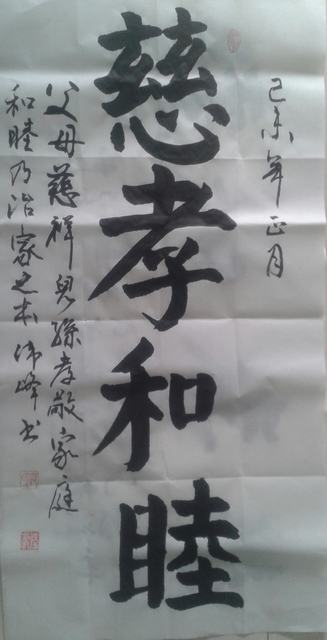 己未年正月
慈孝和睦
父母慈祥儿孙孝敬家庭
和睦乃治家之本伟峰书